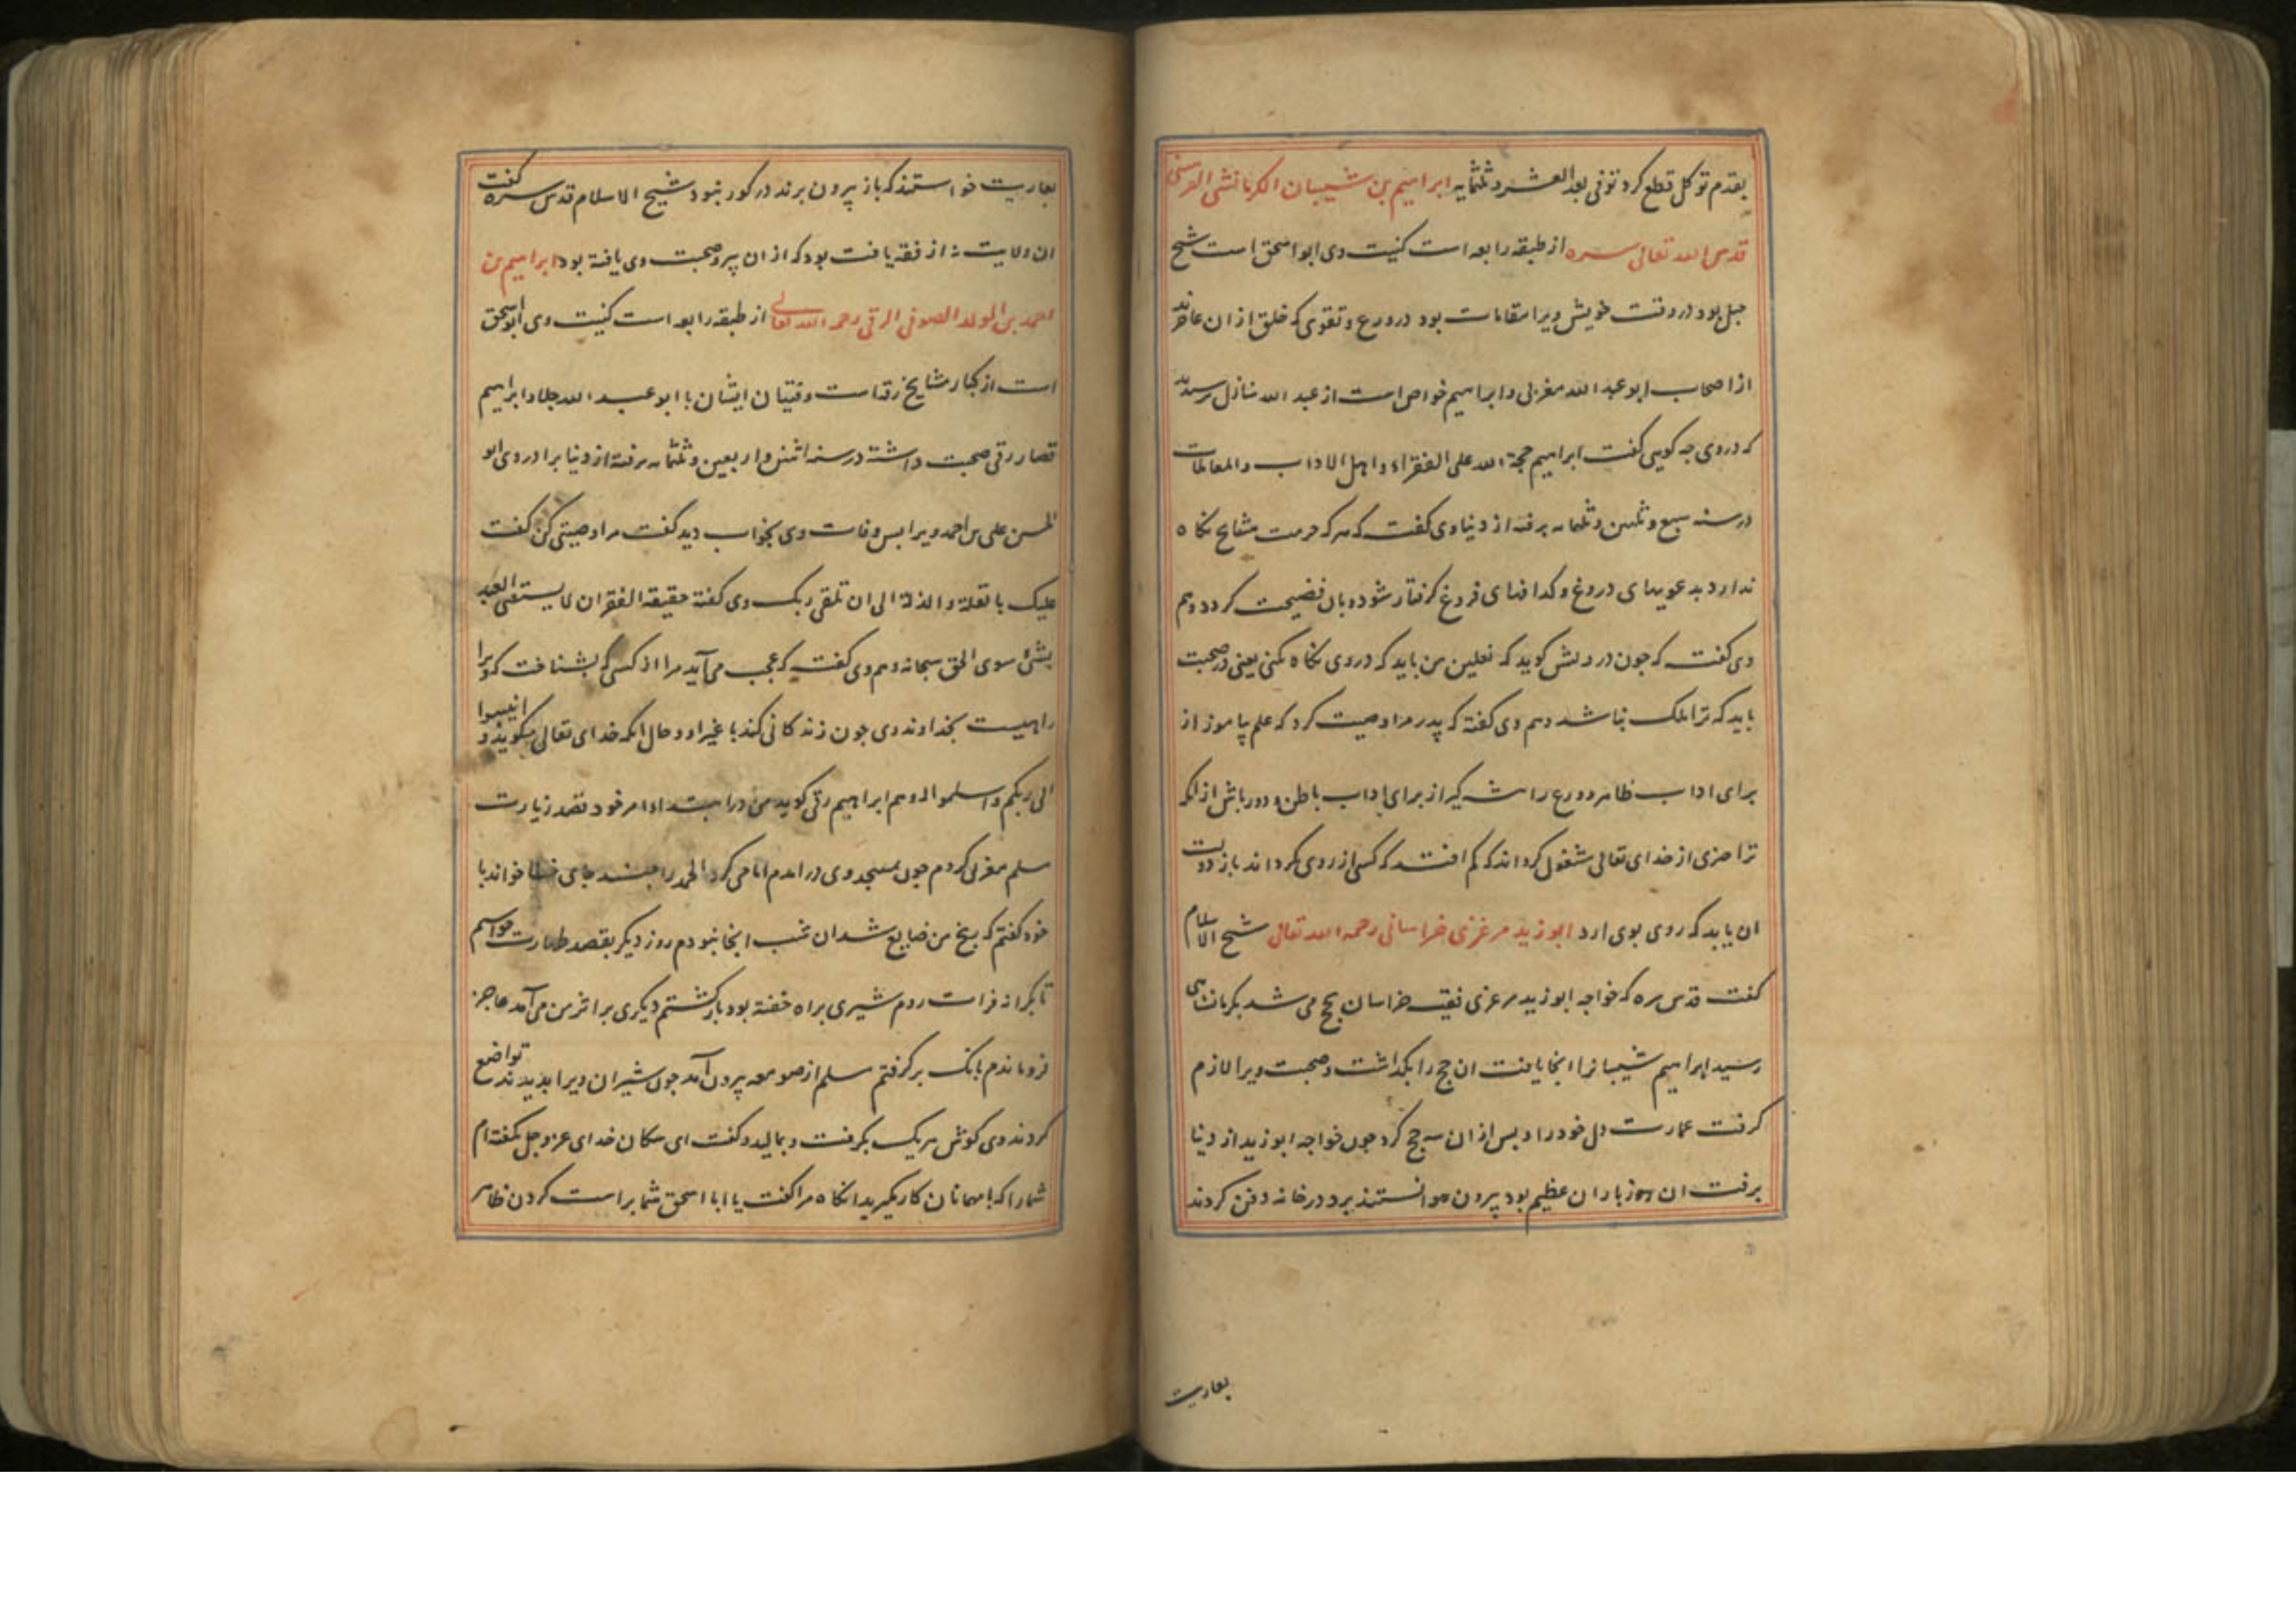 بقدم توکل قطع کرد توفی بعد العشر و ثلثمایه ابراهیم بن شیبان الکرمانشی القرمسی
قدس الله تعالی سره از طبقه رابعه است کنیت وی ابو اسحق است شیخ
جبل بود در وقت خویش ویرا مقامات بود در ورع و تقوی که خلق از ان عاجزند
از اصحاب ابو عبد الله مغربی و ابراهیم خواص است از عبد الله منازل پرسیدند
که در وی چه کویی کفت ابراهیم حجة الله علی الفقراء و اهل الاداب و المعاملات
در سنه سبع و ثلثین و ثلثمایه برفته از دنیا وی کفت که هر که حرمت مشایخ نکاه
ندارد بدعویهای دروغ و کدافهای فروغ کرفتار شود و بان فضیحت کردد و هم
وی کفت که جون درویش کوید که نعلین من باید که در وی نکاه نکنی یعنی در صحبت
باید که ترا ملک نباشد و هم وی کفته که پدر مرا وصیت کرد که علم بیاموز از
برای اداب ظاهر و ورع را شه کیر از برای اداب باطن و دور باش از انکه
ترا جیزی از خدای تعالی مشغول کرداند که کم افتد که کسی از روی بکرداند باز دولت
ان یابد که روی بوی ارد ابو زید مرغزی خراسانی رحمه الله تعالی شیخ الاسلام
کفت قدس سره که خواجه ابو زید مرغزی فقیه خراسان بحج می شد بکرمانشاهی
رسید ابراهیم شیبانرا انجا یافت ان حج را بکذاشت و صحبت ویرا لازم
کرفت عمارت دل خود را و بس از ان سه حج کرد جون خواجه ابو زید از دنیا
برفت ان روز باران عظیم بود بیرون نتوانستند برد در خانه دفن کردند
بعاریت
بعاریت خواستند که باز بیرون برند در کور نبود شیخ الاسلام قدس سره کفت
ان ولایت نه از فقه یافت بود که از ان پیر و صحبت وی یافته بود ابراهیم بن
احمد بن المولد الصوفی الرقی رحمه الله تعالی از طبقه رابعه است کنیت وی ابو اسحق
است از کبار مشایخ رقه است و فتیان ایشان با ابو عبد الله جلا و ابراهیم
قصار رقی صحبت داشته در سنه اثنین و اربعین و ثلثمایه برفته از دنیا برادر وی ابو
الحسن علی بن احمد ویرا بس وفات وی بخواب دید کفت مرا وصیتی کن کفت
علیک بالقلة و الذلة الی ان تلقی ربک وی کفته حقیقة الفقر ان لا یستغنی العبد
بشئ سوی الحق سبحانه و هم وی کفت که عجب می آید مرا از کسی که بشناخت که ویرا
راهیست بخداوند وی جون زندکانی کند با غیر او و حال انکه خدای تعالی میکوید و انیبوا
الی ربکم و اسلموا له و هم ابراهیم رقی کوید من در ابتداء امر خود قصد زیارت
مسلم مغربی کردم جون بمسجد وی در امدم امامی کرد الحمد را جند جای خطا خواند با
خود کفتم که رنج من ضایع شد ان شب انجا بودم روز دیکر بقصد طهارت خواستم
تا بکرانه فرات روم شیری براه خفته بود باز کشتم دیکری بر اثر من می آمد عاجز
فرو ماندم بانک بر کرفتم مسلم از صومعه بیرون آمد جون شیران ویرا بدیدند تواضع
کردند وی کوش هر یک بکرفت و بمالید و کفت ای سکان خدای عز و جل نکفته ام
شما را که با مهمانان کار نکیرید انکاه مرا کفت یا ابا اسحق شما براست کردن ظاهر